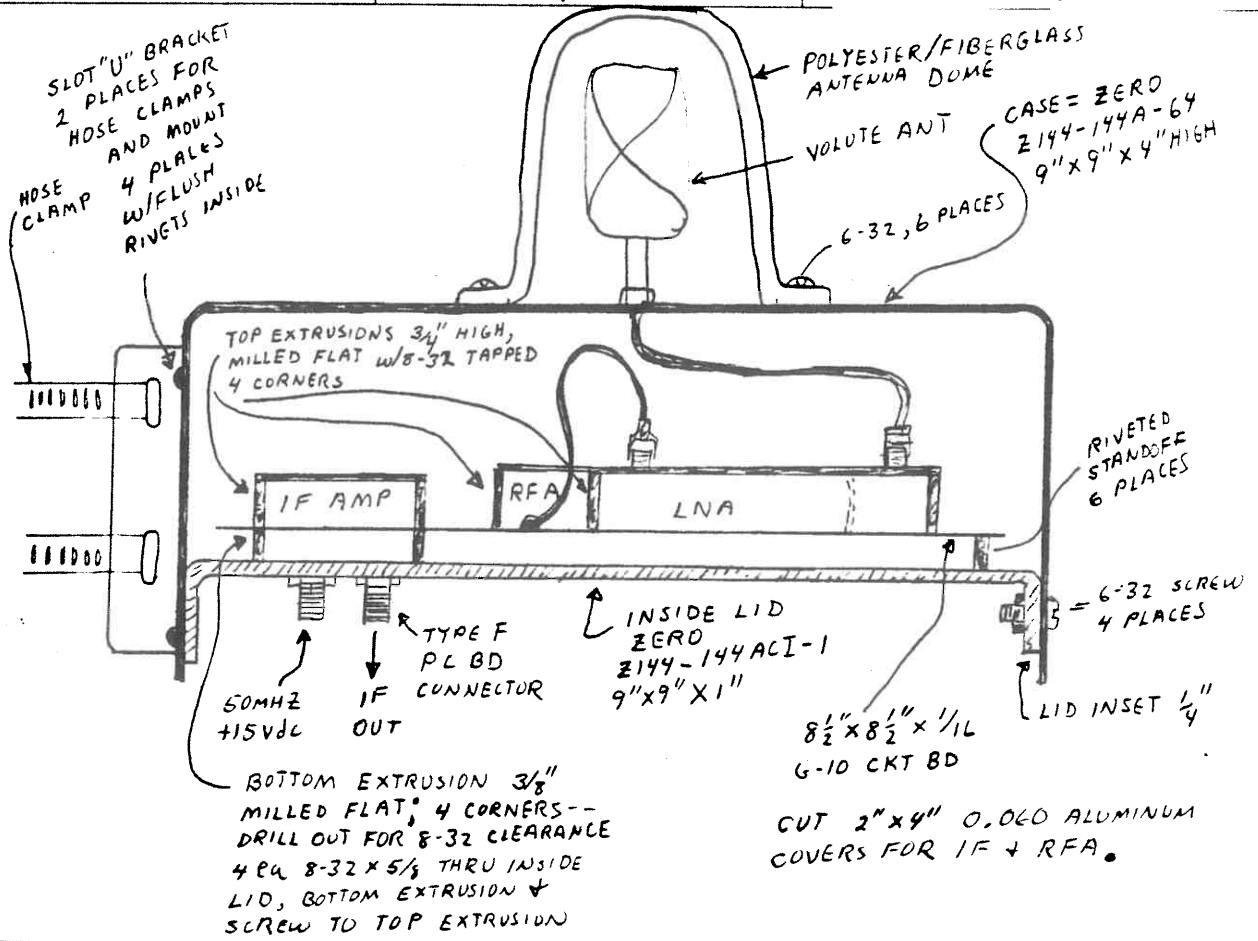 SLOT "U" BRACKET
2 PLACES FOR
HOSE CLAMPS
AND MOUNT
4 PLACES
W/FLUSH
RIVETS INSIDE
HOSE
CLAMP
POLYESTER/FIBERGLASS
ANTENNA DOME
VOLUTE ANT
CASE = ZERO
Z144-144A-64
9" X 9" X 4" HIGH
6-32, 6 PLACES
TOP EXTRUSIONS 3/4" HIGH,
MILLED FLAT W/8-32 TAPPED
4 CORNERS
IF AMP
RFA
LNA
RIVETED
STANDOFF
6 PLACES
= 6-32 SCREW
4 PLACES
LID INSET 1/4"
INSIDE LID
ZERO
Z144-144ACI-1
9"X9"X1"
TYPE F
PC BD
CONNECTOR
50MHZ
+15Vdc
IF
OUT
8 1/2" X 8 1/2" X 1/16
G-10 CKT BD
BOTTOM EXTRUSION 3/8"
MILLED FLAT; 4 CORNERS--
DRILL OUT FOR 8-32 CLEARANCE
4 ea 8-32 X 5/8 THRU INSIDE
LID, BOTTOM EXTRUSION &
SCREW TO TOP EXTRUSION
CUT 2" X 4" 0.060 ALUMINUM
COVERS FOR IF & RFA.